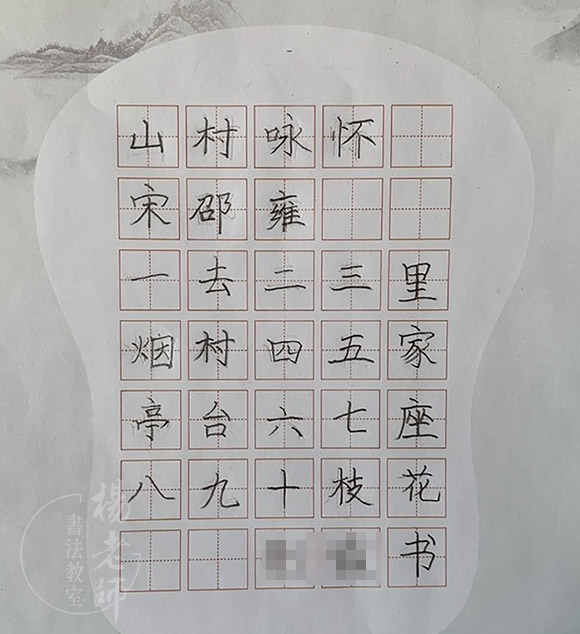 山村咏怀
宋邵雍
一去二三里
烟村四五家
亭台六七座
八九十枝花
书
楊老師
書法教室